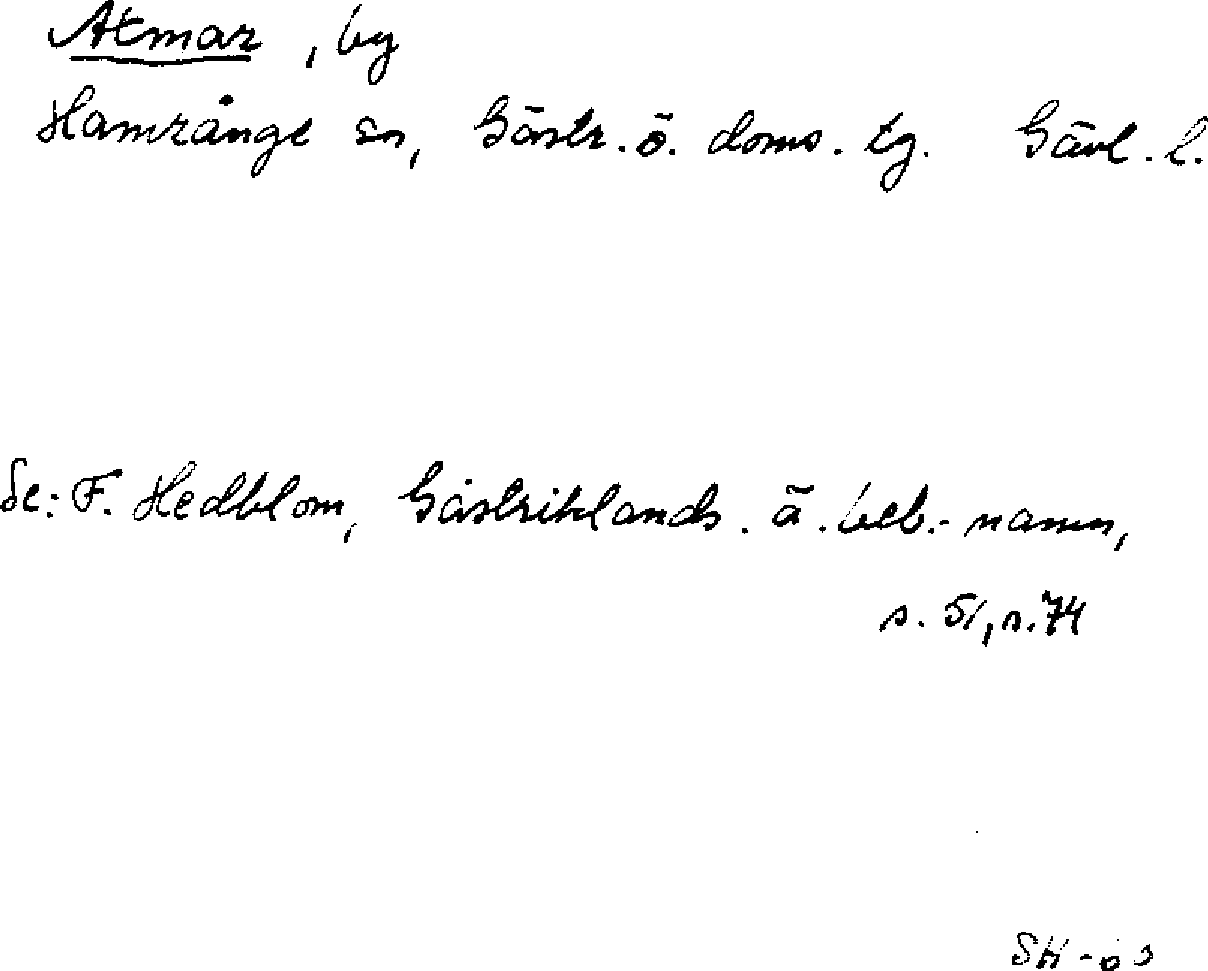 Atmar, by
Hamrånge sn, Gästr. ö. doms. tg. Gävl. l.
Se: F. Hedblom, Gästriklands. ä. beb.-namn,
s. 51, s. 74